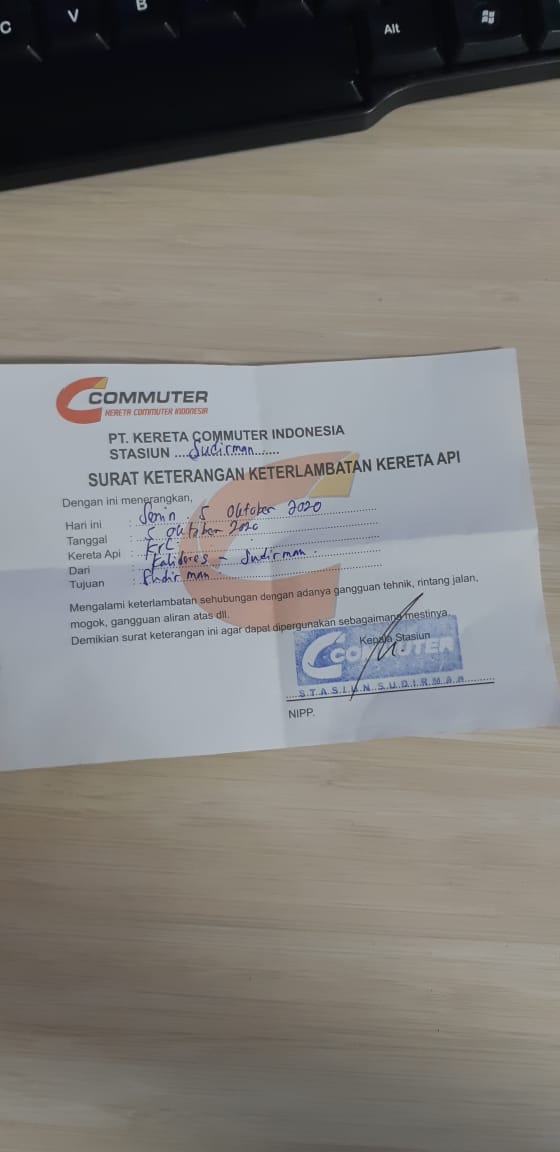 C
V
B
Alt
COMMUTER
KERETA COMMUTER INDONESIA
PT. KERETA COMMUTER INDONESIA
STASIUN ....Sudirman.......
SURAT KETERANGAN KETERLAMBATAN KERETA API
Dengan ini menerangkan,
Hari ini : Senin . 5 Oktober 2020
Tanggal : 5 Oktober 2020
Kereta Api : KRL
Dari : Kalideres - Sudirman.
Tujuan : Sudirman
Mengalami keterlambatan sehubungan dengan adanya gangguan tehnik, rintang jalan,
mogok, gangguan aliran atas dll.
Demikian surat keterangan ini agar dapat dipergunakan sebagaimana mestinya.
Kepala Stasiun
COMMUTER
STASIUN SUDIRMAN
NIPP.